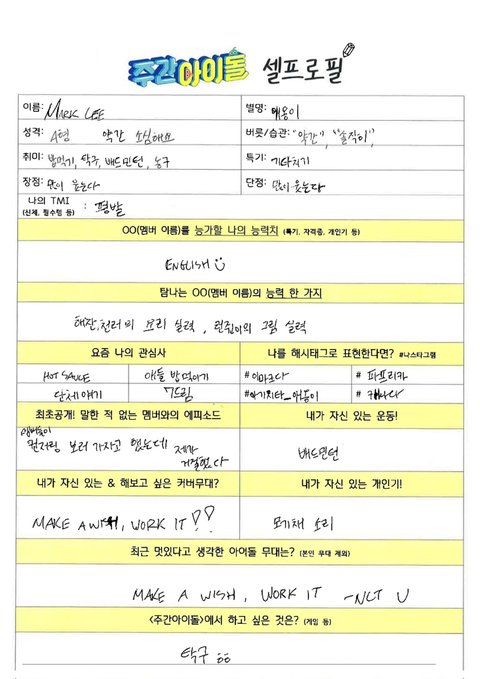 주간아이돌 셀프로필
이름: MARK LEE 별명:
성격: A형 약간 소심해요 버릇/습관: "약간", "솔직히",
취미: 밥먹기, 탁구, 배드민턴, 농구 특기: 기타치기
장점: 많이 웃는다 단점: 많이 웃는다
나의 TMI
(신체, 필수템 등) : 평발
OO(멤버 이름)를 능가할 나의 능력치 (특기, 자격증, 개인기 등)
ENGLISH
탐나는 OO(멤버 이름)의 능력 한 가지
해찬, 천러의 요리 실력, 런쥔이의 그림 실력
요즘 나의 관심사 나를 해시태그로 표현한다면? #나스타그램
HOT SAUCE 애들 밥 먹이기 # # 파프리카
단체 얘기 7드림 # #캐나다
최초공개! 말한 적 없는 멤버와의 에피소드 내가 자신 있는 운동!
멤버들이
보러 가자고 했는데 제가
거절했다
배드민턴
내가 자신 있는 & 해보고 싶은 커버무대? 내가 자신 있는 개인기!
MAKE A WISH, WORK IT!! 모기채 소리
최근 멋있다고 생각한 아이돌 무대는? (본인 무대 제외)
MAKE A WISH, WORK IT -NCT U
<주간아이돌>에서 하고 싶은 것은? (게임 등)
탁구